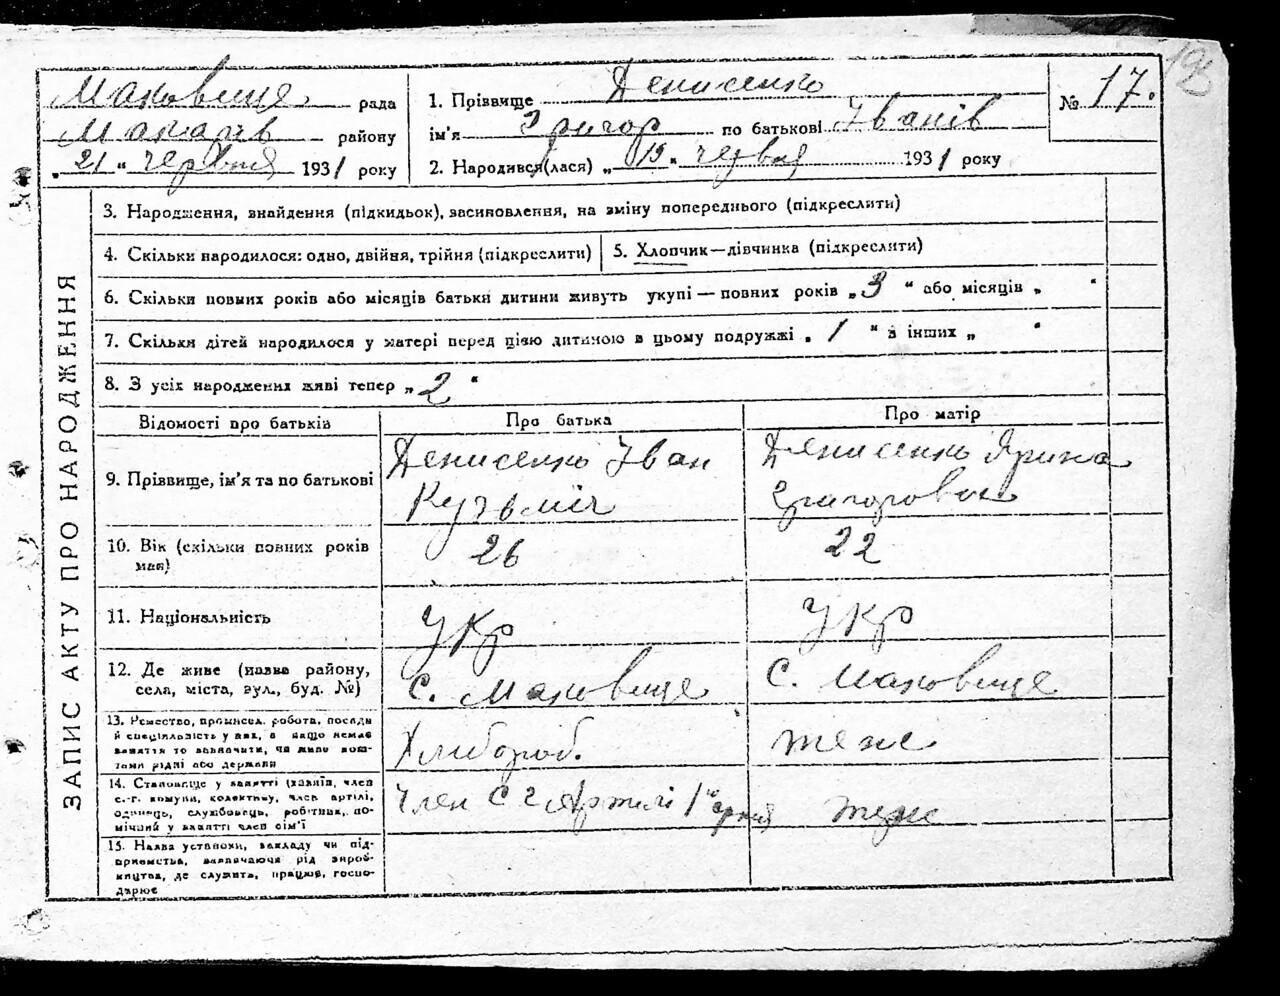 193
Маковище рада
Макарів району
„21" червня 1931 року
1. Пріввище Денисенко
ім'я Григор по батькові Іванів
2. Народився(лася) „19" червня 1931 року
№ 17.
ЗАПИС АКТУ ПРО НАРОДЖЕННЯ
3. Народження, знайдення (підкидьок), засиновлення, на зміну попереднього (підкреслити)
4. Скільки народилося: одно, двійня, трійня (підкреслити)
5. Хлопчик—дівчинка (підкреслити)
6. Скільки повних років або місяців батьки дитини живуть укупі — повних років „3" або місяців „ "
7. Скільки дітей народилося у матері перед цією дитиною в цьому подружжі „1" з інших „ "
8. З усіх народжених живі тепер „2"
Відомості про батьків
Про батька
Про матір
9. Пріввище, ім'я та по батькові
Денисенко Іван
Кузьмич
Денисенко Ярина
Григоровна
10. Вік (скільки повних років
має)
26
22
11. Національність
укр
укр
12. Де живе (назва району,
села, міста, вул., буд. №)
с. Маковище
с. Маковище
13. Ремество, промисел, робота, посада
й спеціяльність у них, а якщо немає
заняття то зазначити, чи живе кош-
тами рідні або держави
Хлибороб.
теже
14. Становище у занятті (хазяїн, член
с.-г. комуни, колективу, член артілі,
одинець, службовець, робітник, по-
мічний у занятті член сім'ї
Член С Г Артилі 1го
теже
15. Назва установи, закладу чи під-
приємства, зазначаючи рід вироб-
ництва, де служить, працює, госпо-
дарює